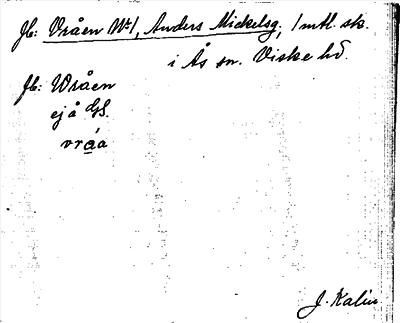 Jb: Vråen No 1, Anders Mickelsg, 1 mtl sk.
i Ås sn. Viske hd.
Jb: Wråen
ej å GS.
vráa
J. Kalin